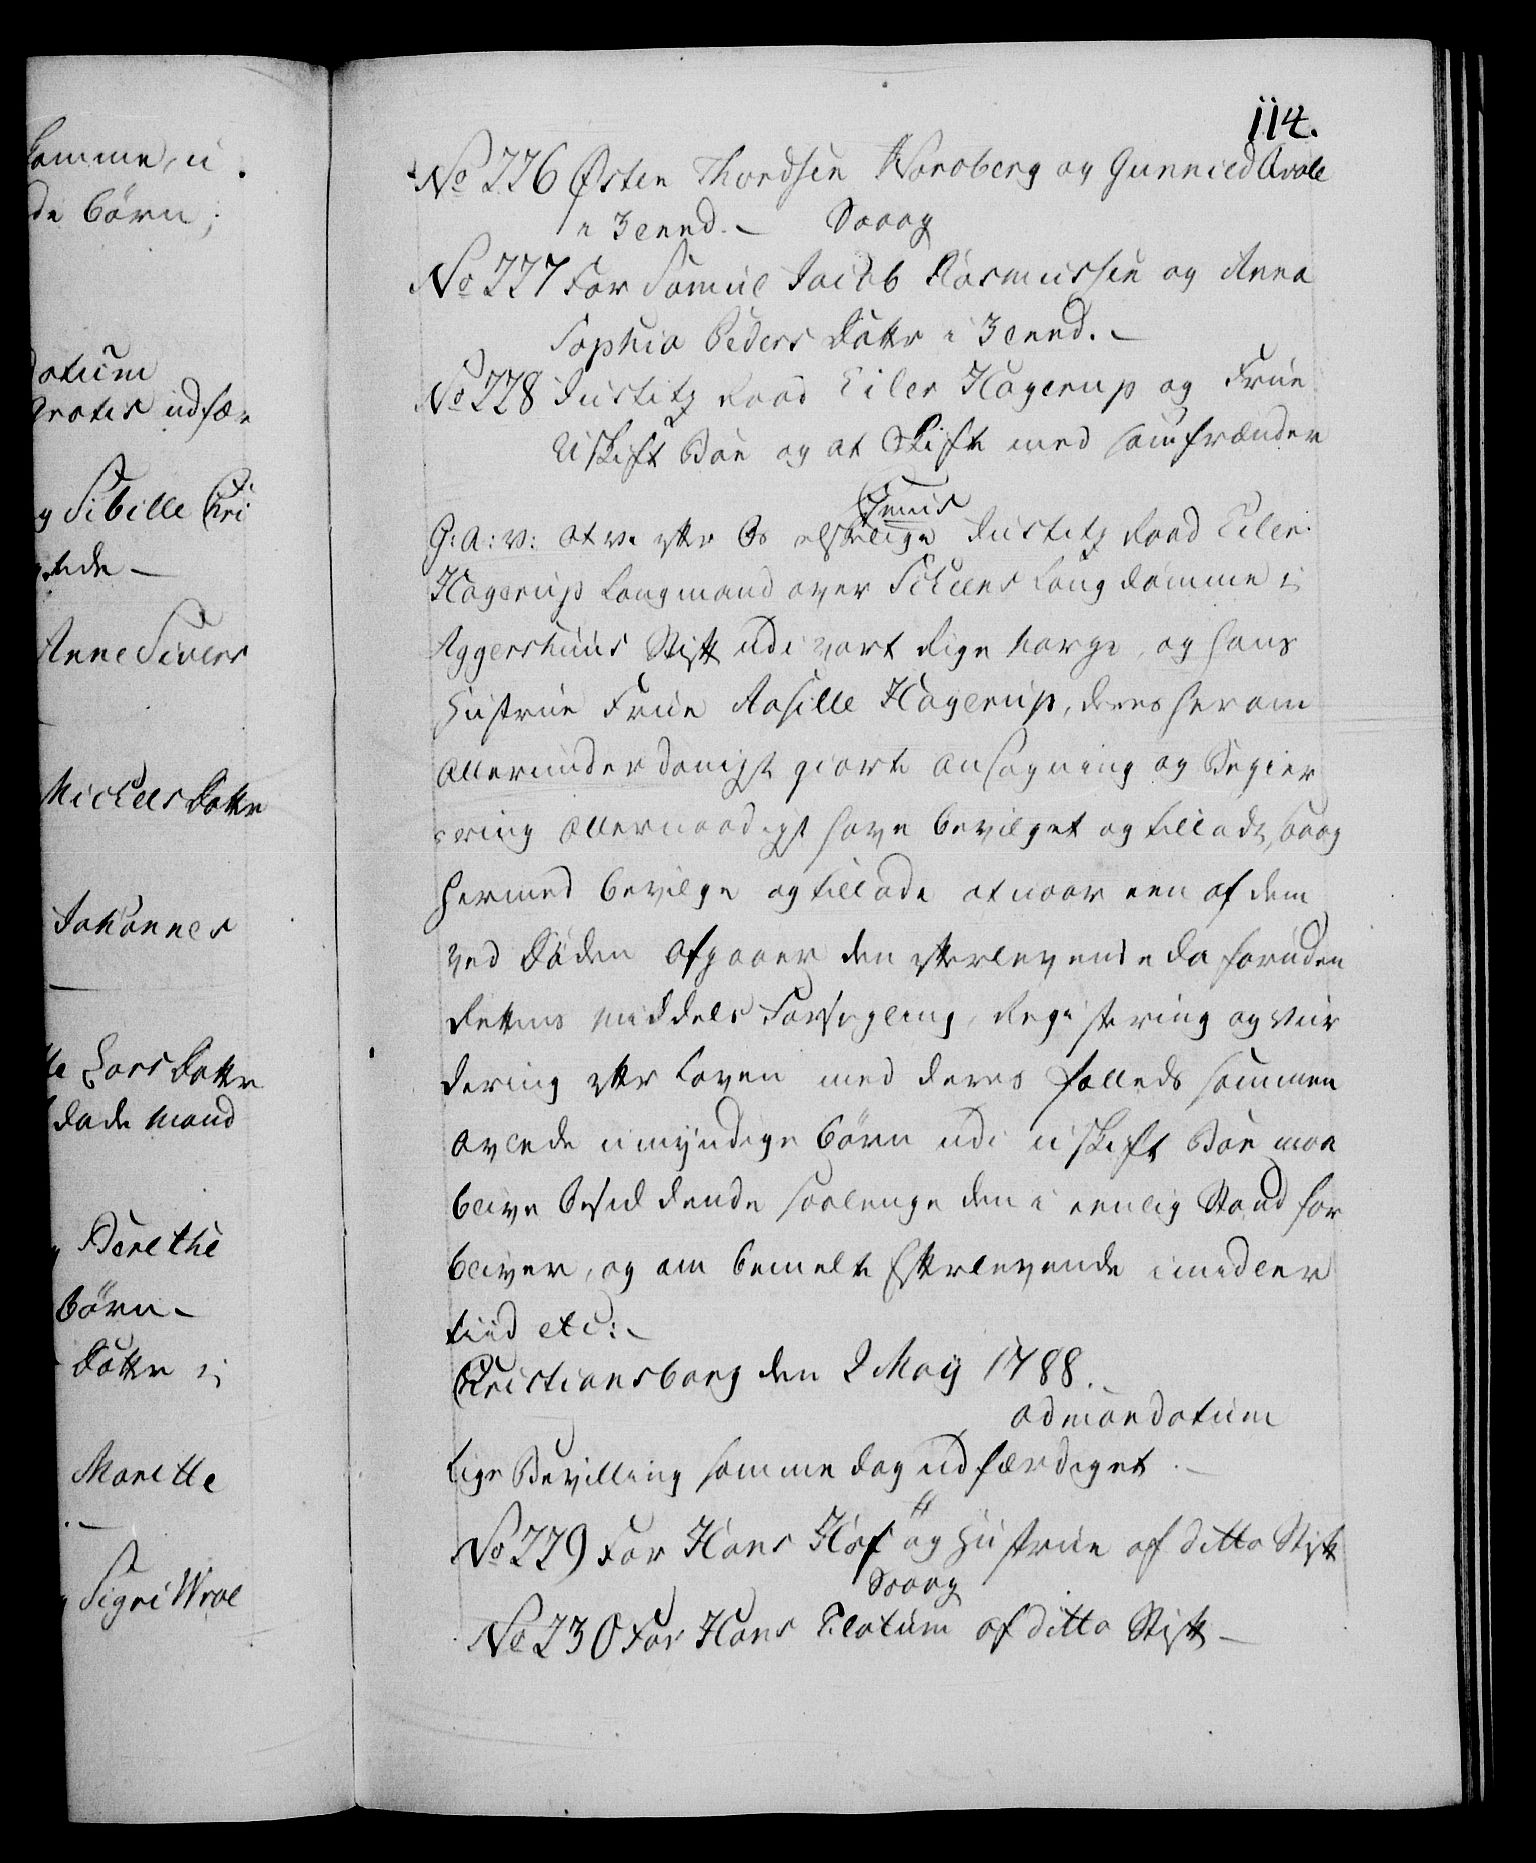 114.
No 226 Østen Thordsen Nordberg og Gunnild Avale
i 3 eend. – Saaog
No 227 For Samuel Jacob Rasmussen og Anna
Sophia Peders Dattr i 3 eend. –
No 228 Justitz Raad Eiler Hagerup og Frue
Uskift Boe og at Skifte med samfrænder
G: A: V: at vi eftr Os elskelige Justitz Raad Eiler
Hagerup Laugmand over Scheens Laug dømme i
Aggershuus Stift udi vort Rige Norge, og hans
Hustrue Frue Hagerup, deres herom
allerunderdanigst giorte ansøgning og Begier
ering allernaadigst have bevilget og tilladt, saaog
hermed bevilge og tillade at naar een af dem
ved Døden afgaaer den efterlevende da foruden
Rettens middels Forsegling, Registering og Vur
dering eftr Loven med deres fælleds sammen
avlede umyndige Børn udi uskift Boe maa
blive besiddende saalenge den i eenlig Stand for
bliver, og om bemelte Efterlevende imidler
tiid etc: –
Christiansborg den 2 May 1788.
ad mandatum
Lige Bevilling samme dag udfærdiget. –
No 229 For Hans Hof og Hustrue af ditto Stift
Saaog
No 230 For Hans Flatum af ditto Stift –
komme, u
de Børn;
datum
gratis udfær
g Sibille Chri
Anne Sivers
Michels Dattr
Johannes
Lars Dattr
døde Mand
Berethe
Børn –
Dattr i
Marithe
Sigri Wroe